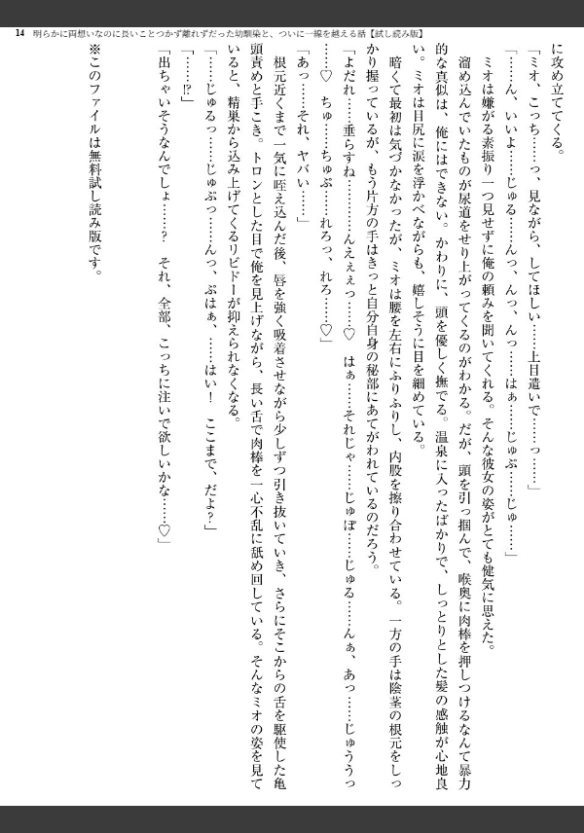 14　明らかに両想いなのに長いことつかず離れずだった幼馴染と、ついに一線を越える話【試し読み版】
に攻め立ててくる。
「ミオ、こっち……っ、見ながら、してほしい……上目遣いで……っ……」
「……ん、いいよ……じゅる……んっ、んっ、んっ……はぁ……じゅぷ……じゅ……」
　ミオは嫌がる素振り一つ見せずに俺の頼みを聞いてくれる。そんな彼女の姿がとても健気に思えた。
　溜め込んでいたものが尿道をせり上がってくるのがわかる。だが、頭を引っ掴んで、喉奥に肉棒を押しつけるなんて暴力
的な真似は、俺にはできない。かわりに、頭を優しく撫でる。温泉に入ったばかりで、しっとりとした髪の感触が心地良
い。ミオは目尻に涙を浮かべながらも、嬉しそうに目を細めている。
　暗くて最初は気づかなかったが、ミオは腰を左右にふりふりし、内股を擦り合わせている。一方の手は陰茎の根元をしっ
かり握っているが、もう片方の手はきっと自分自身の秘部にあてがわれているのだろう。
「よだれ……垂らすね…………んえぇぇっ……♡　はぁ……それじゃ……じゅぽ……じゅる……んぁ、あっ……じゅううっ
……♡　ちゅ……ちゅぷ……れろっ、れろ……♡」
「あっ……それ、ヤバい……」
　根元近くまで一気に咥え込んだ後、唇を強く吸着させながら少しずつ引き抜いていき、さらにそこからの舌を駆使した亀
頭責めと手こき。トロンとした目で俺を見上げながら、長い舌で肉棒を一心不乱に舐め回している。そんなミオの姿を見て
いると、精巣から込み上げてくるリビドーが抑えられなくなる。
「……じゅるっ……じゅぶっ……んっ、ぷはぁ、……はい！　ここまで、だよ？」
「……!?」
「出ちゃいそうなんでしょ……？　それ、全部、こっちに注いで欲しいかな……♡」
※このファイルは無料試し読み版です。